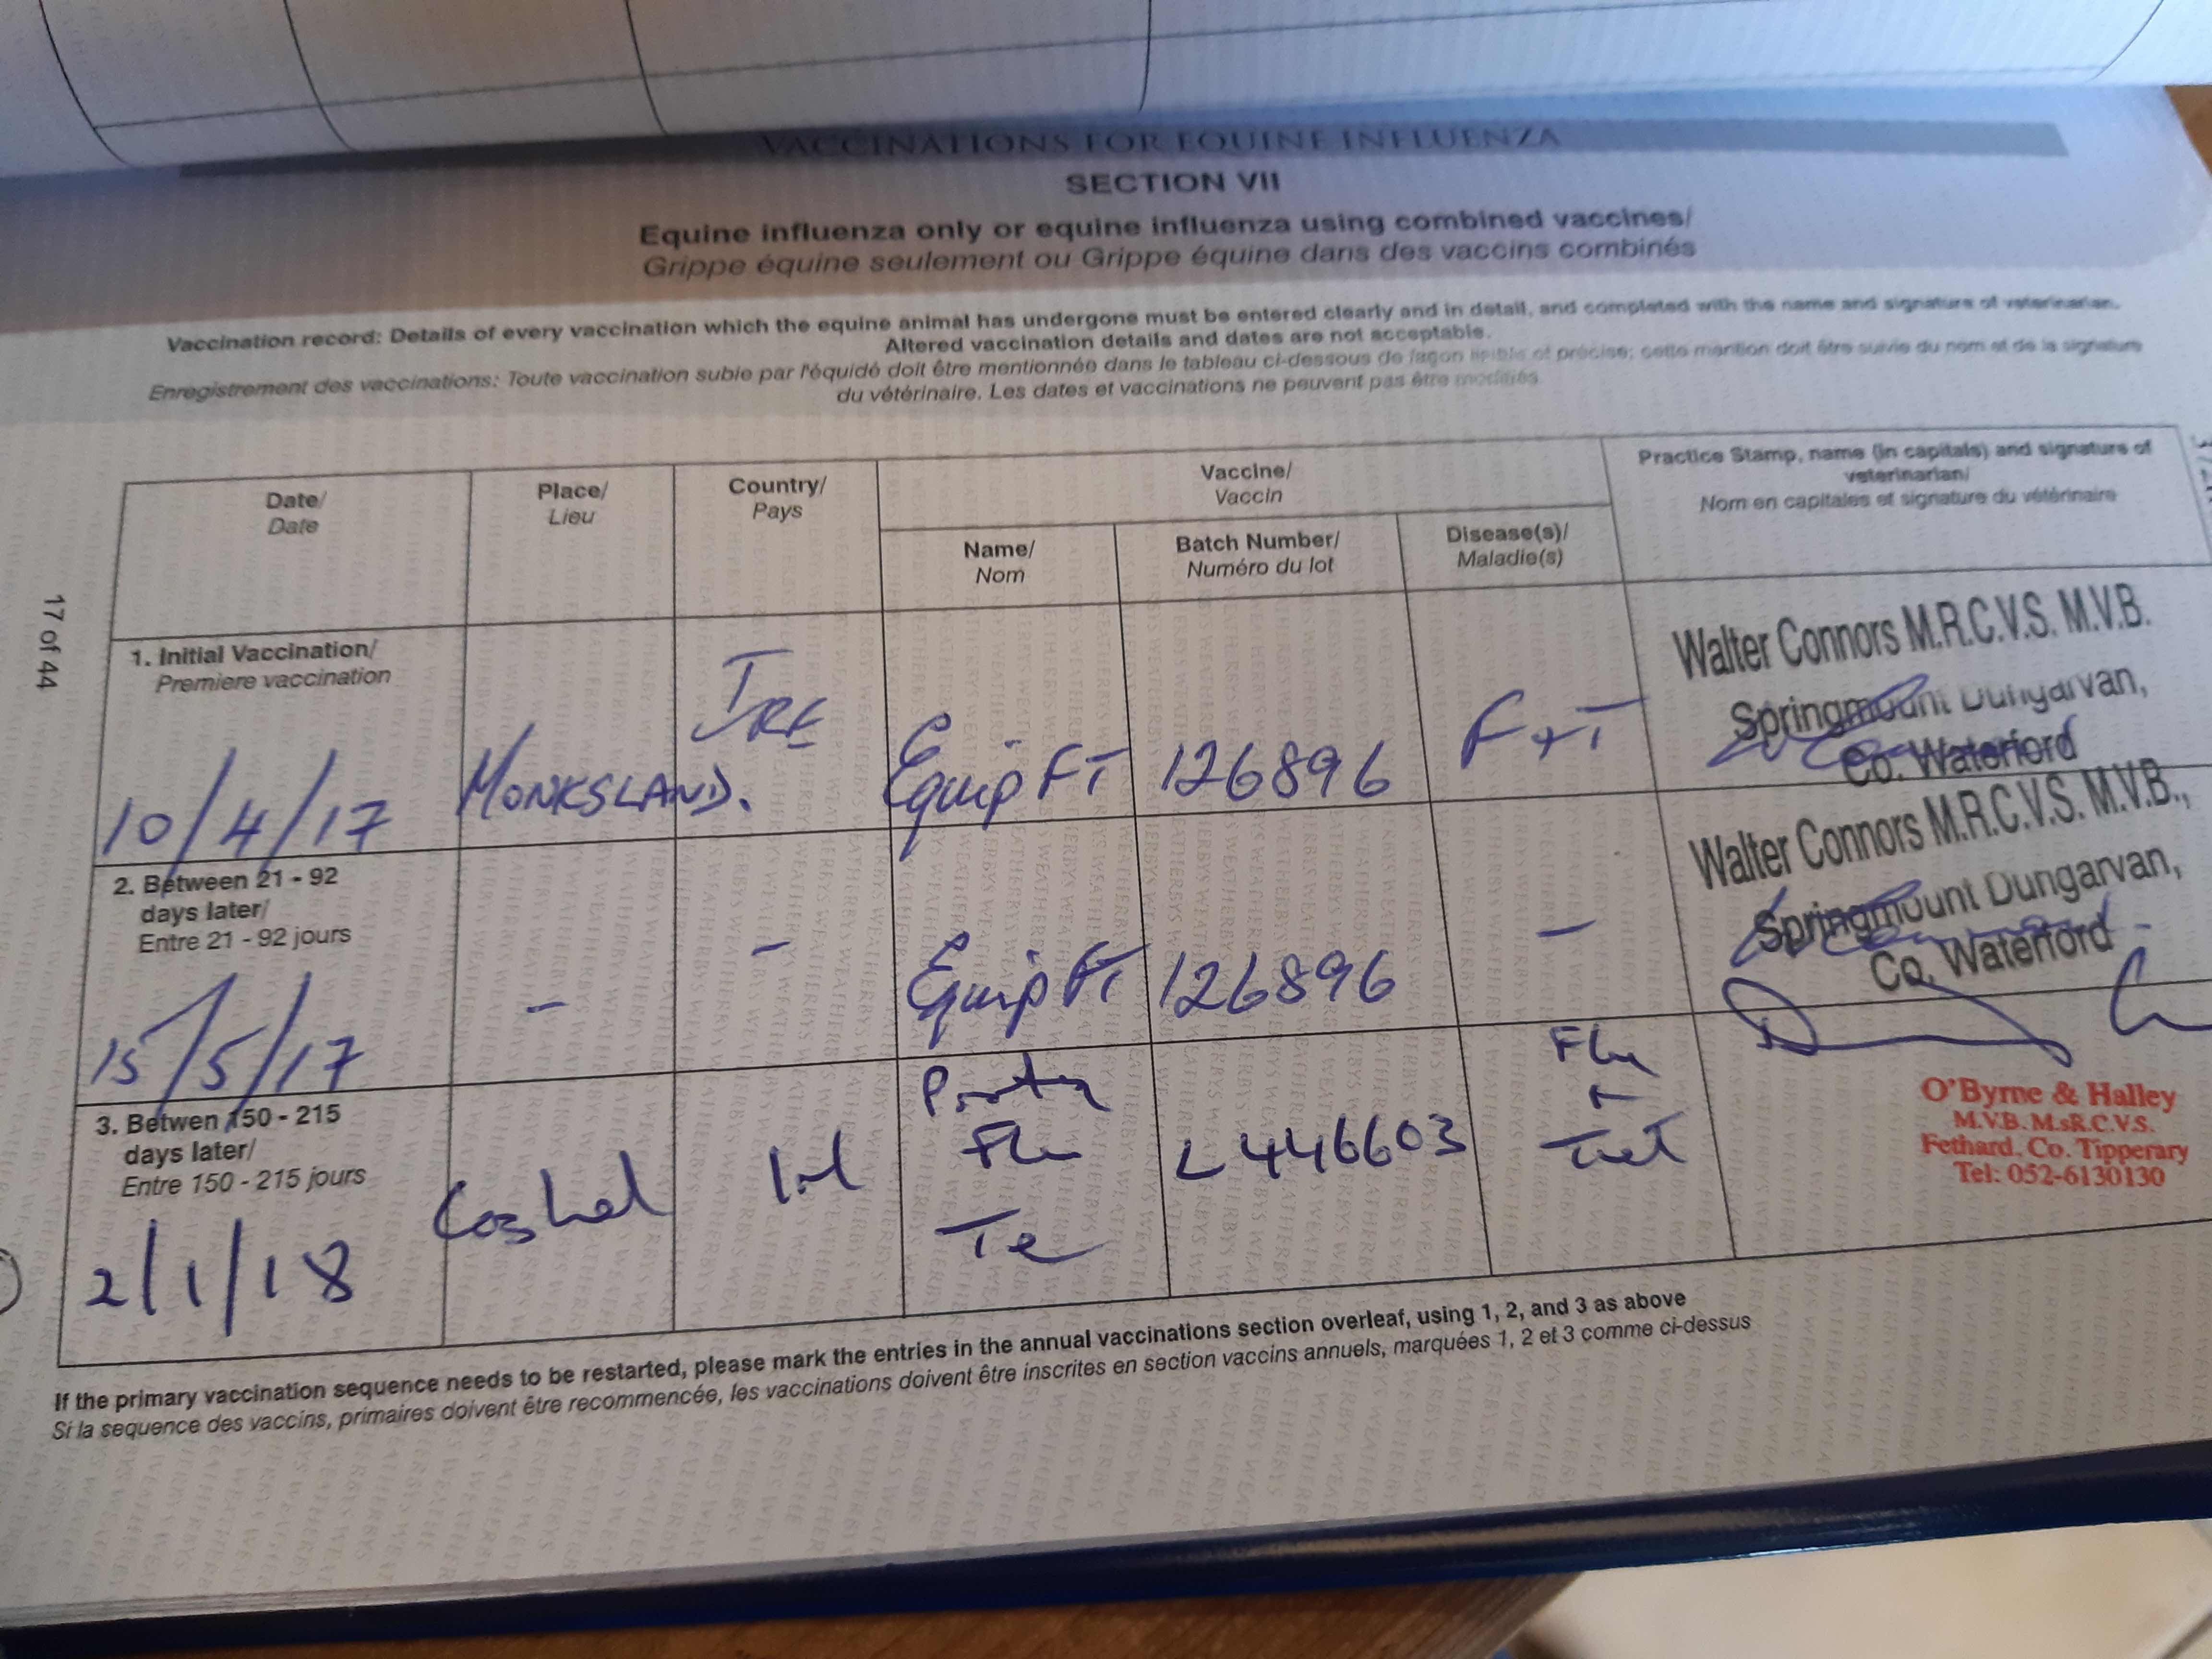 VACCINATIONS FOR EQUINE INFLUENZA
SECTION VII
Equine influenza only or equine influenza using combined vaccines/
Grippe équine seulement ou Grippe équine dans des vaccins combinés
Vaccination record: Details of every vaccination which the equine animal has undergone must be entered clearly and in detail, and completed with the name and signature of veterinarian.
Altered vaccination details and dates are not acceptable.
Enregistrement des vaccinations: Toute vaccination subie par l'équidé doit être mentionnée dans le tableau ci-dessous de façon lisible et précise; cette mention doit être suivie du nom et de la signature
du vétérinaire. Les dates et vaccinations ne peuvent pas être modifiés.
Date/
Date
Place/
Lieu
Country/
Pays
Vaccine/
Vaccin
Name/
Nom
Batch Number/
Numéro du lot
Disease(s)/
Maladie(s)
Practice Stamp, name (in capitals) and signature of
veterinarian/
Nom en capitales et signature du vétérinaire
1. Initial Vaccination/
Premiere vaccination
10/4/17
MONKSLAND.
IRE
Equip FT
126896
F+T
Walter Connors M.R.C.V.S. M.V.B.
Springmount Dungarvan,
Co. Waterford
2. Between 21 - 92
days later/
Entre 21 - 92 jours
15/5/17
-
-
Equip FT
126896
-
Walter Connors M.R.C.V.S. M.V.B.,
Springmount Dungarvan,
Co. Waterford
3. Betwen 150 - 215
days later/
Entre 150 - 215 jours
2/1/18
Cashel
Irl
Flu
Te
L446603
Flu
+
Tet
O'Byrne & Halley
M.V.B. M.sR.C.V.S.
Fethard, Co. Tipperary
Tel: 052-6130130
If the primary vaccination sequence needs to be restarted, please mark the entries in the annual vaccinations section overleaf, using 1, 2, and 3 as above
Si la sequence des vaccins, primaires doivent être recommencée, les vaccinations doivent être inscrites en section vaccins annuels, marquées 1, 2 et 3 comme ci-dessus
17 of 44